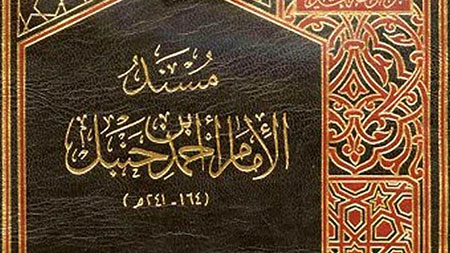 مُسْنَدُ
الإمَامِ أَحْمَدَ بْنِ حَنْبَلٍ
(١٦٤ - ٢٤١ هـ)